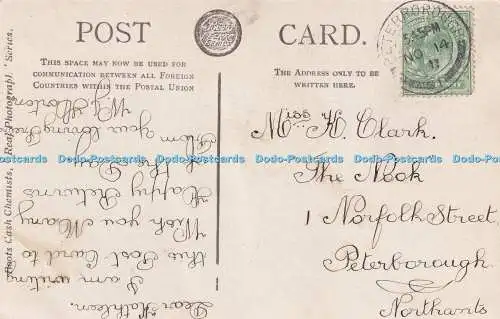 POST CARD.
THIS SPACE MAY NOW BE USED FOR
COMMUNICATION BETWEEN ALL FOREIGN
COUNTRIES WITHIN THE POSTAL UNION
THE ADDRESS ONLY TO BE
WRITTEN HERE.
PETERBOROUGH
NO 14
11
Boots Cash Chemists, "Real Photograph" Series.
Dear Kathleen.
I am writing
this Post Card to
Wish you Many
Happy Returns
of the Day
From
Your loving
Miss K. Clark.
The Nook
1 Norfolk Street.
Peterborough.
Northants
Dodo Postcards Dodo Postcards Dodo Postcards Dodo Postcards Dodo Postcards Dodo Postcards